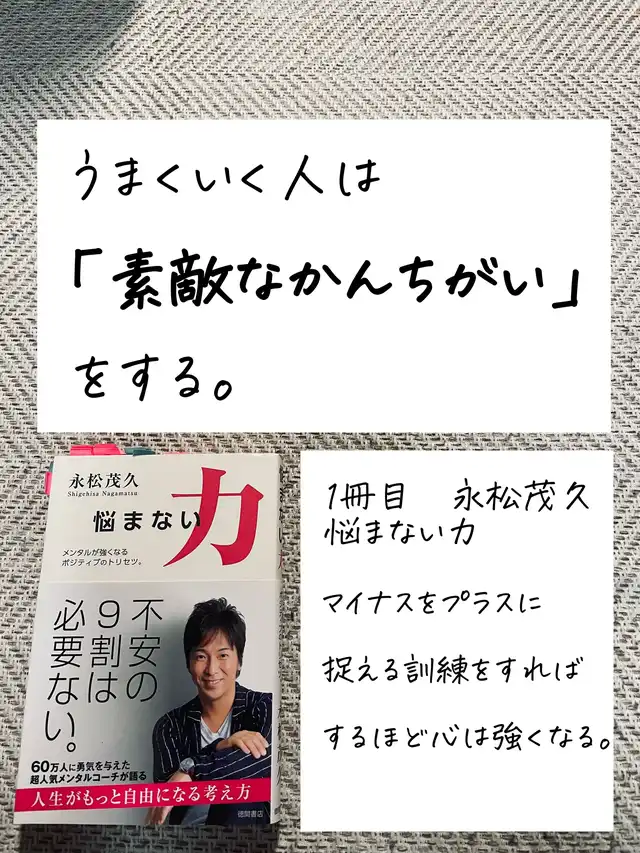 うまくいく人は
「素敵なかんちがい」
をする。
永松茂久
Shigehisa Nagamatsu
悩まない力
メンタルが強くなる
ポジティブのトリセツ。
不安の
9割は
必要ない。
60万人に勇気を与えた
超人気メンタルコーチが語る
人生がもっと自由になる考え方
徳間書店
1冊目 永松茂久
悩まない力
マイナスをプラスに
捉える訓練をすれば
するほど心は強くなる。